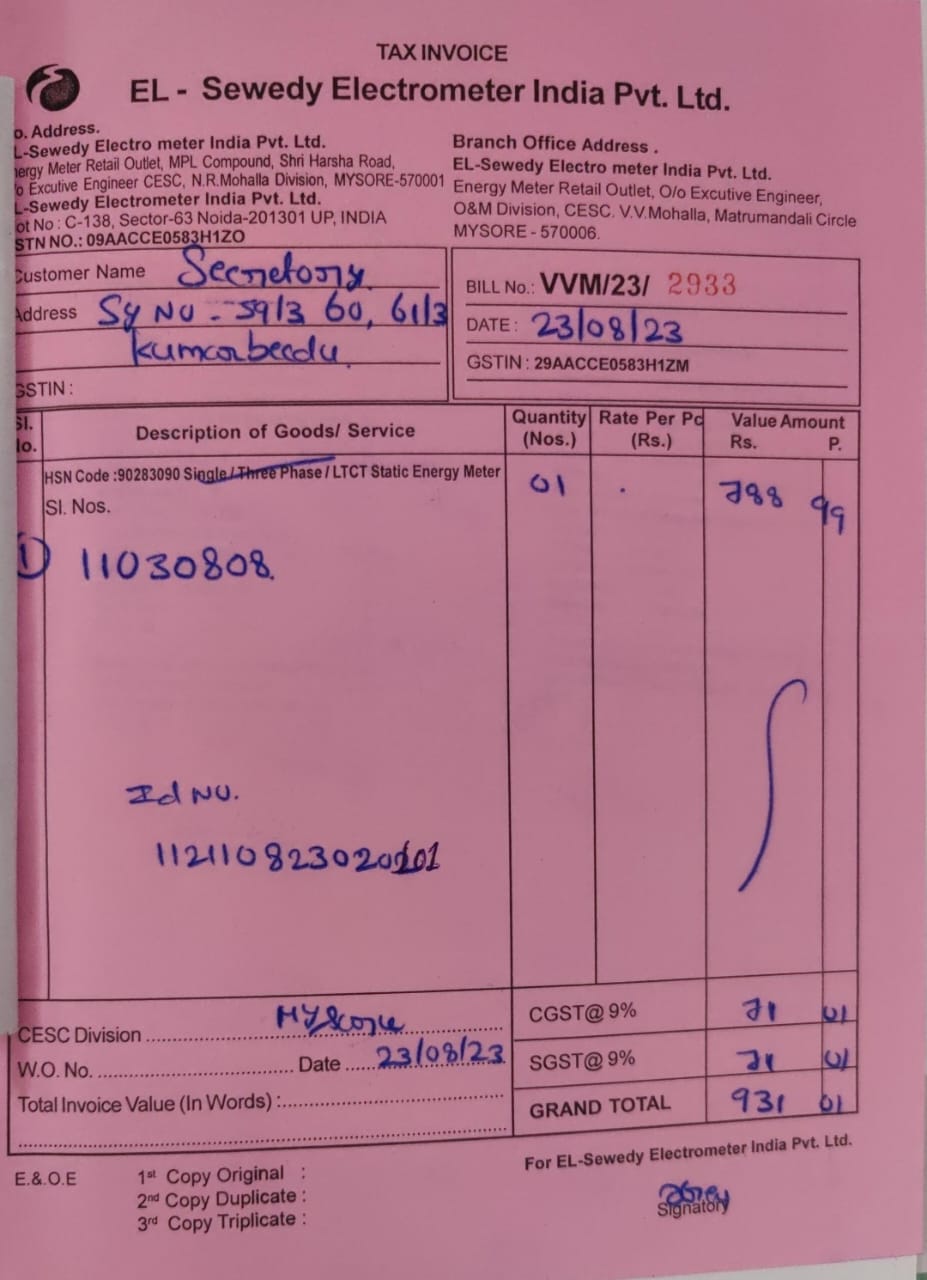 TAX INVOICE
EL - Sewedy Electrometer India Pvt. Ltd.
o. Address.
L-Sewedy Electro meter India Pvt. Ltd.
nergy Meter Retail Outlet, MPL Compound, Shri Harsha Road,
/o Excutive Engineer CESC, N.R.Mohalla Division, MYSORE-570001
L-Sewedy Electrometer India Pvt. Ltd.
ot No : C-138, Sector-63 Noida-201301 UP, INDIA
STN NO.: 09AACCE0583H1ZO
Branch Office Address .
EL-Sewedy Electro meter India Pvt. Ltd.
Energy Meter Retail Outlet, O/o Excutive Engineer,
O&M Division, CESC. V.V.Mohalla, Matrumandali Circle
MYSORE - 570006.
Customer Name Secretory
Address Sy No - 59/3 60, 61/3
kumarbeedu
GSTIN :
BILL No.: VVM/23/ 2933
DATE : 23/08/23
GSTIN : 29AACCE0583H1ZM
Sl. No. Description of Goods/ Service Quantity (Nos.) Rate Per Pc (Rs.) Value Amount Rs. P.
HSN Code :90283090 Single / Three Phase / LTCT Static Energy Meter 01 788 99
Sl. Nos.
1) 11030808.
Id No.
112110823020201
CESC Division Mysore
W.O. No. Date 23/08/23
Total Invoice Value (In Words) :
CGST@ 9% 71 01
SGST@ 9% 71 01
GRAND TOTAL 931 01
E.&.O.E
1st Copy Original :
2nd Copy Duplicate :
3rd Copy Triplicate :
For EL-Sewedy Electrometer India Pvt. Ltd.
Signatory